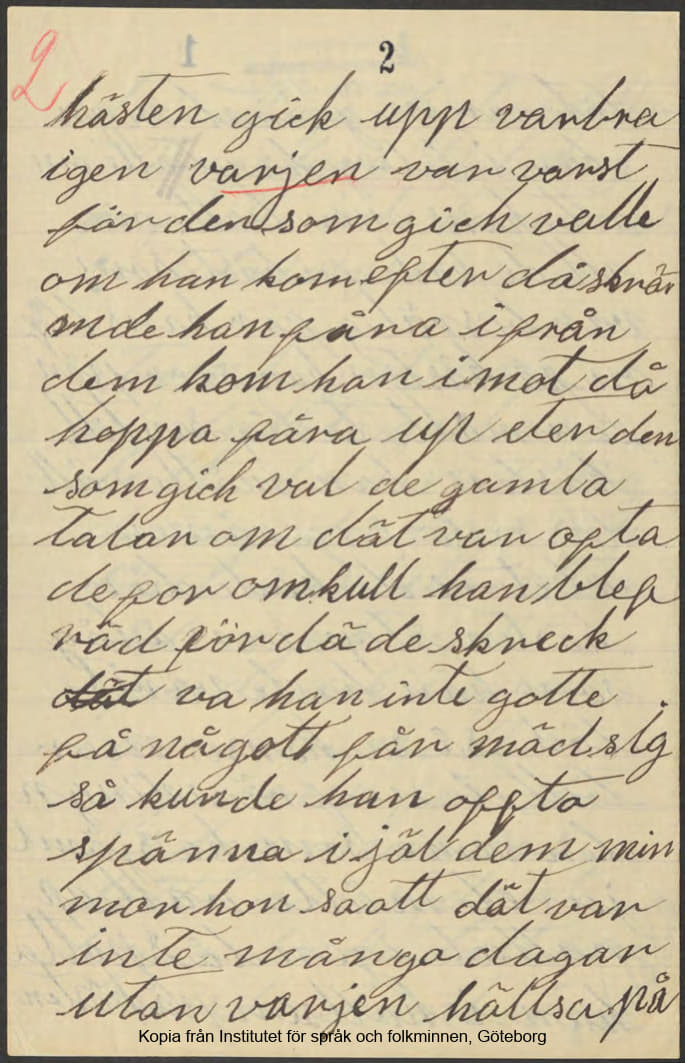 2
2
hästen gick upp var bra
igen varjen var varst
för den som gich valle
om han kom efter då skrä
mde han fåra ifrån
dem kom han imot då
hoppa fåra up eter den
som gich val de gamla
talar om dät var ofta
de for omkull han blef
räd för då de skreck
va han inte gotte
få någott får mäd sig
så kunde han offta
spänna i jäl dem min
mor hon sa att dät var
inte många dagar
utan varjen hällsa på
Kopia från Institutet för språk och folkminnen, Göteborg